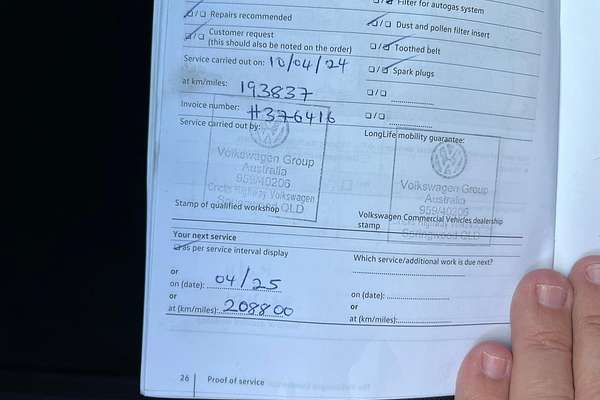 Filter for autogas system
Repairs recommended
Dust and pollen filter insert
Customer request
(this should also be noted on the order)
Toothed belt
Service carried out on: 10/04/24
Spark plugs
at km/miles: 193837
Invoice number: #376416
Service carried out by:
LongLife mobility guarantee:
Volkswagen Group
Australia
959/40206
Highway Volkswagen
QLD
Stamp of qualified workshop
Volkswagen Group
Australia
959/40206
Highway Volkswagen
Springwood QLD
Volkswagen Commercial Vehicles dealership
stamp
Your next service
as per service interval display
or
on (date): 04/25
or
at (km/miles): 208800
Which service/additional work is due next?
on (date):
or
at (km/miles):
26 Proof of service